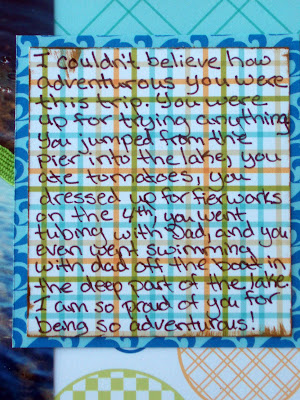 I couldn't believe how
adventurous you were
this trip. You were
up for trying anything.
You jumped from the
pier into the lake, you
ate tomatoes, you
dressed up for fierworks
on the 4th, you went
tubing with Dad, and you
even went swimming
with dad off the boat in
the deep part of the lake.
I am so proud of you for
being so adventurous!